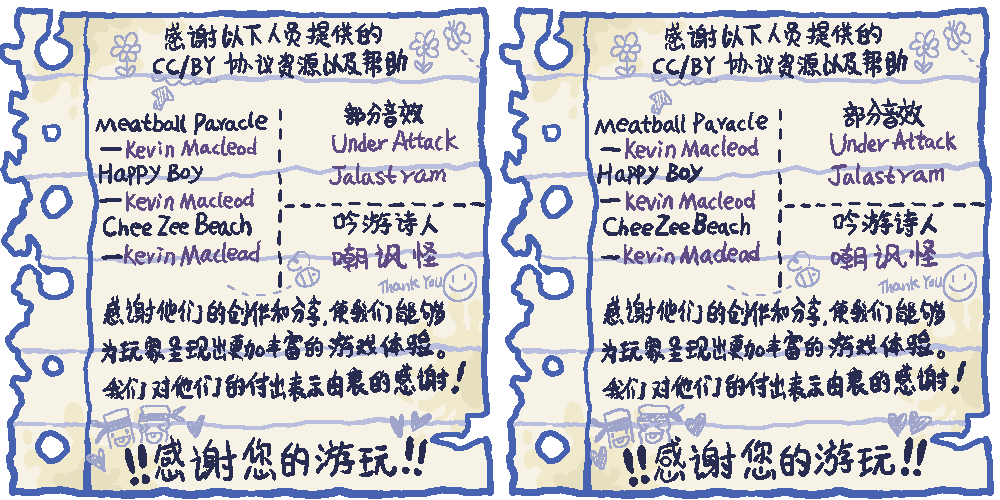 感谢以下人员提供的
CC/BY 协议资源以及帮助
Meatball Paracle
—Kevin Macleod
Happy Boy
—Kevin Macleod
Chee Zee Beach
—Kevin Maclead
部分音效
Under Attack
Jalastram
吟游诗人
嘲讽怪
Thank You
感谢他们的创作和分享,使我们能够
为玩家呈现出更加丰富的游戏体验。
我们对他们的付出表示由衷的感谢!
!!感谢您的游玩!!
感谢以下人员提供的
CC/BY 协议资源以及帮助
Meatball Paracle
—Kevin Macleod
Happy Boy
—Kevin Macleod
Chee Zee Beach
—Kevin Maclead
部分音效
Under Attack
Jalastram
吟游诗人
嘲讽怪
Thank You
感谢他们的创作和分享,使我们能够
为玩家呈现出更加丰富的游戏体验。
我们对他们的付出表示由衷的感谢!
!!感谢您的游玩!!